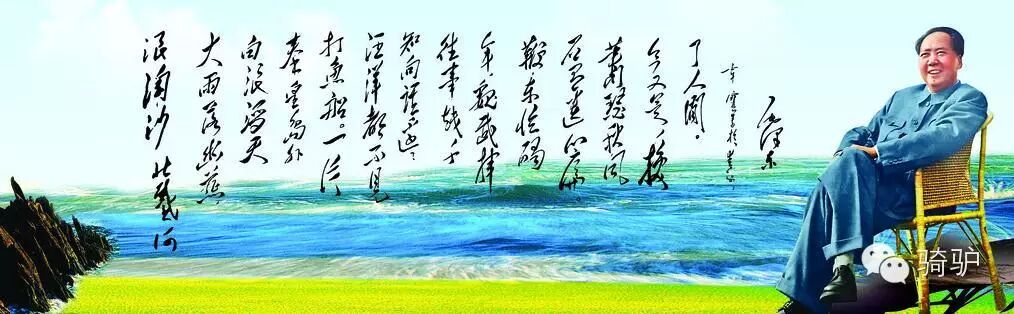 浪淘沙 北戴河
大雨落幽燕
白浪滔天
秦皇島外
打魚船。一片
汪洋都不見
知向誰邊
往事越千
年,魏武揮
鞭东临碣
石有遗篇
萧瑟秋风
今又是,换
了人间。
毛泽东
骑驴